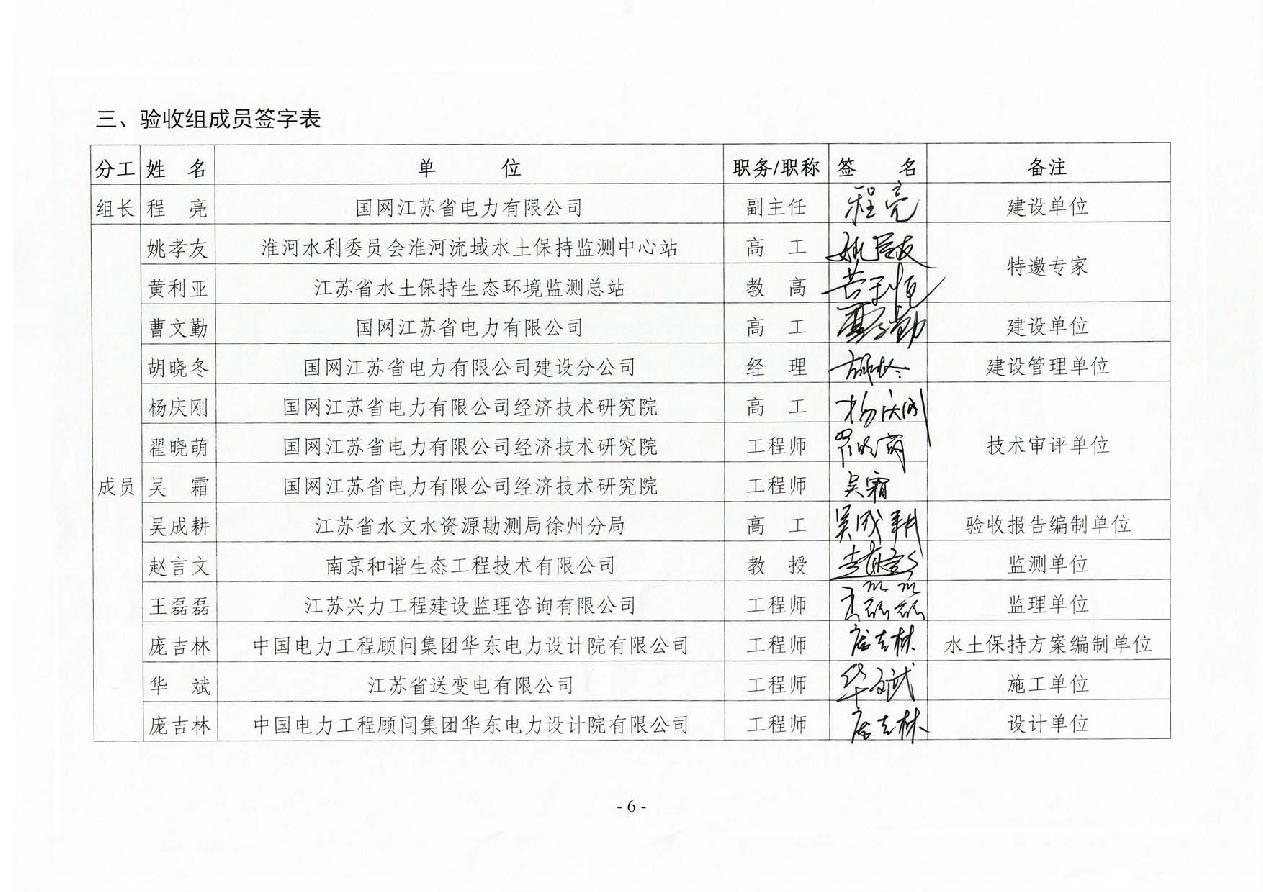 三、验收组成员签字表
分工 姓 名 单 位 职务/职称 签 名 备注
组长 程 亮 国网江苏省电力有限公司 副主任 程亮 建设单位
姚孝友 淮河水利委员会淮河流域水土保持监测中心站 高 工
特邀专家
黄利亚 江苏省水土保持生态环境监测总站 教 高
曹文勤 国网江苏省电力有限公司 高 工 建设单位
胡晓冬 国网江苏省电力有限公司建设分公司 经 理 建设管理单位
杨庆刚 国网江苏省电力有限公司经济技术研究院 高 工 杨庆刚
翟晓萌 国网江苏省电力有限公司经济技术研究院 工程师 技术审评单位
成员 吴 霜 国网江苏省电力有限公司经济技术研究院 工程师 吴霜
吴成耕 江苏省水文水资源勘测局徐州分局 高 工 吴成耕 验收报告编制单位
赵言文 南京和谐生态工程技术有限公司 教 授 监测单位
王磊磊 江苏兴力工程建设监理咨询有限公司 工程师 王磊磊 监理单位
庞吉林 中国电力工程顾问集团华东电力设计院有限公司 工程师 庞吉林 水土保持方案编制单位
华 斌 江苏省送变电有限公司 工程师 华斌 施工单位
庞吉林 中国电力工程顾问集团华东电力设计院有限公司 工程师 庞吉林 设计单位
- 6 -